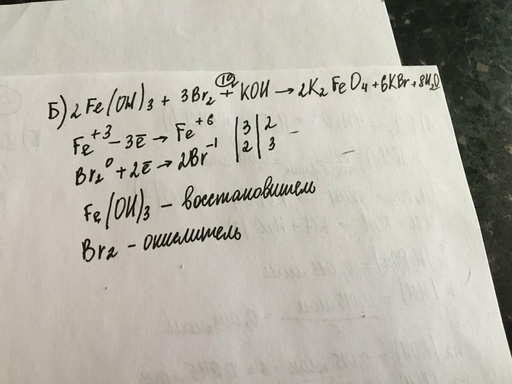 Б) 2Fe(OH)₃ + 3Br₂ + 10 KOH → 2K₂FeO₄ + 6KBr + 8H₂O
Fe⁺³ - 3ē → Fe⁺⁶ | 3 | 2 -
Br₂⁰ + 2ē → 2Br⁻¹ | 2 | 3 -
Fe(OH)₃ - восстановитель
Br₂ - окислитель